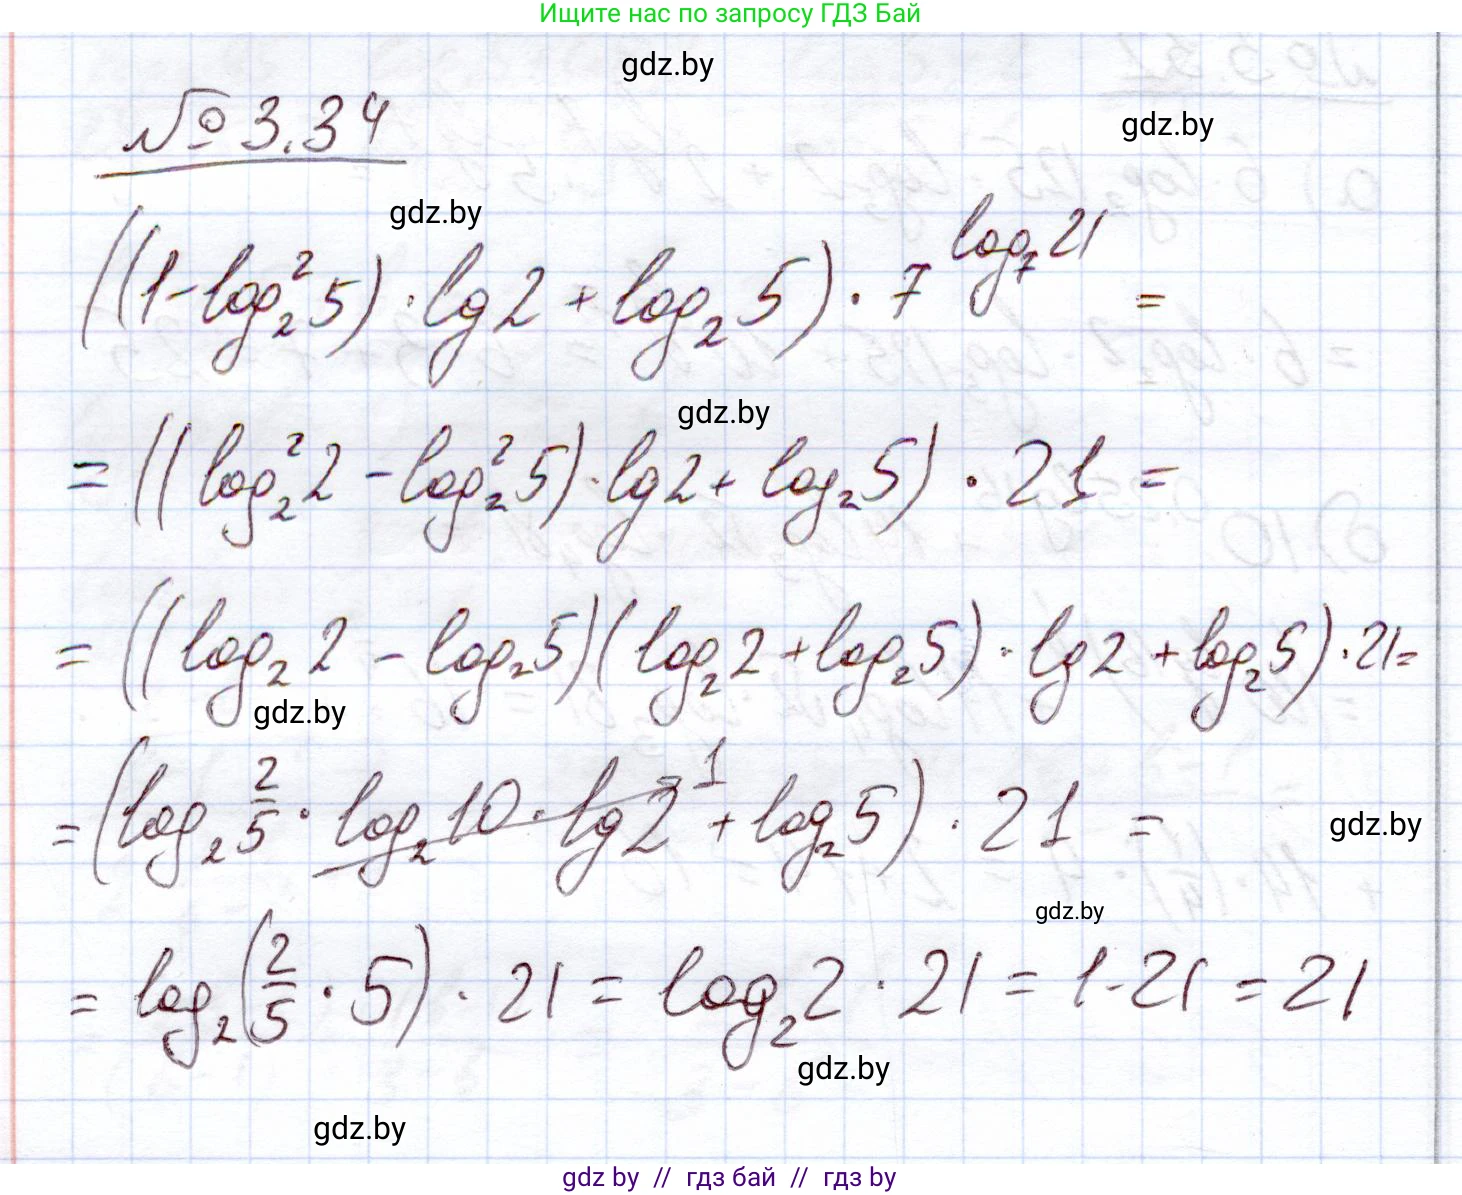 Ищите нас по запросу ГДЗ Бай
gdz.by
gdz.by
№ 3.34
gdz.by
((1-log₂²5)·lg2+log₂5)·7^(log₇21) =
gdz.by
= ((log₂²2-log₂²5)·lg2+log₂5)·21 =
= ((log₂2-log₂5)(log₂2+log₂5)·lg2+log₂5)·21=
gdz.by
= (log₂ 2/5 · log₂10 · lg2 ¹ + log₂5)·21 =
gdz.by
gdz.by
= log₂(2/5 · 5)·21 = log₂2·21 = 1·21 = 21
gdz.by
gdz.by
gdz by // гдз бай // гдз by